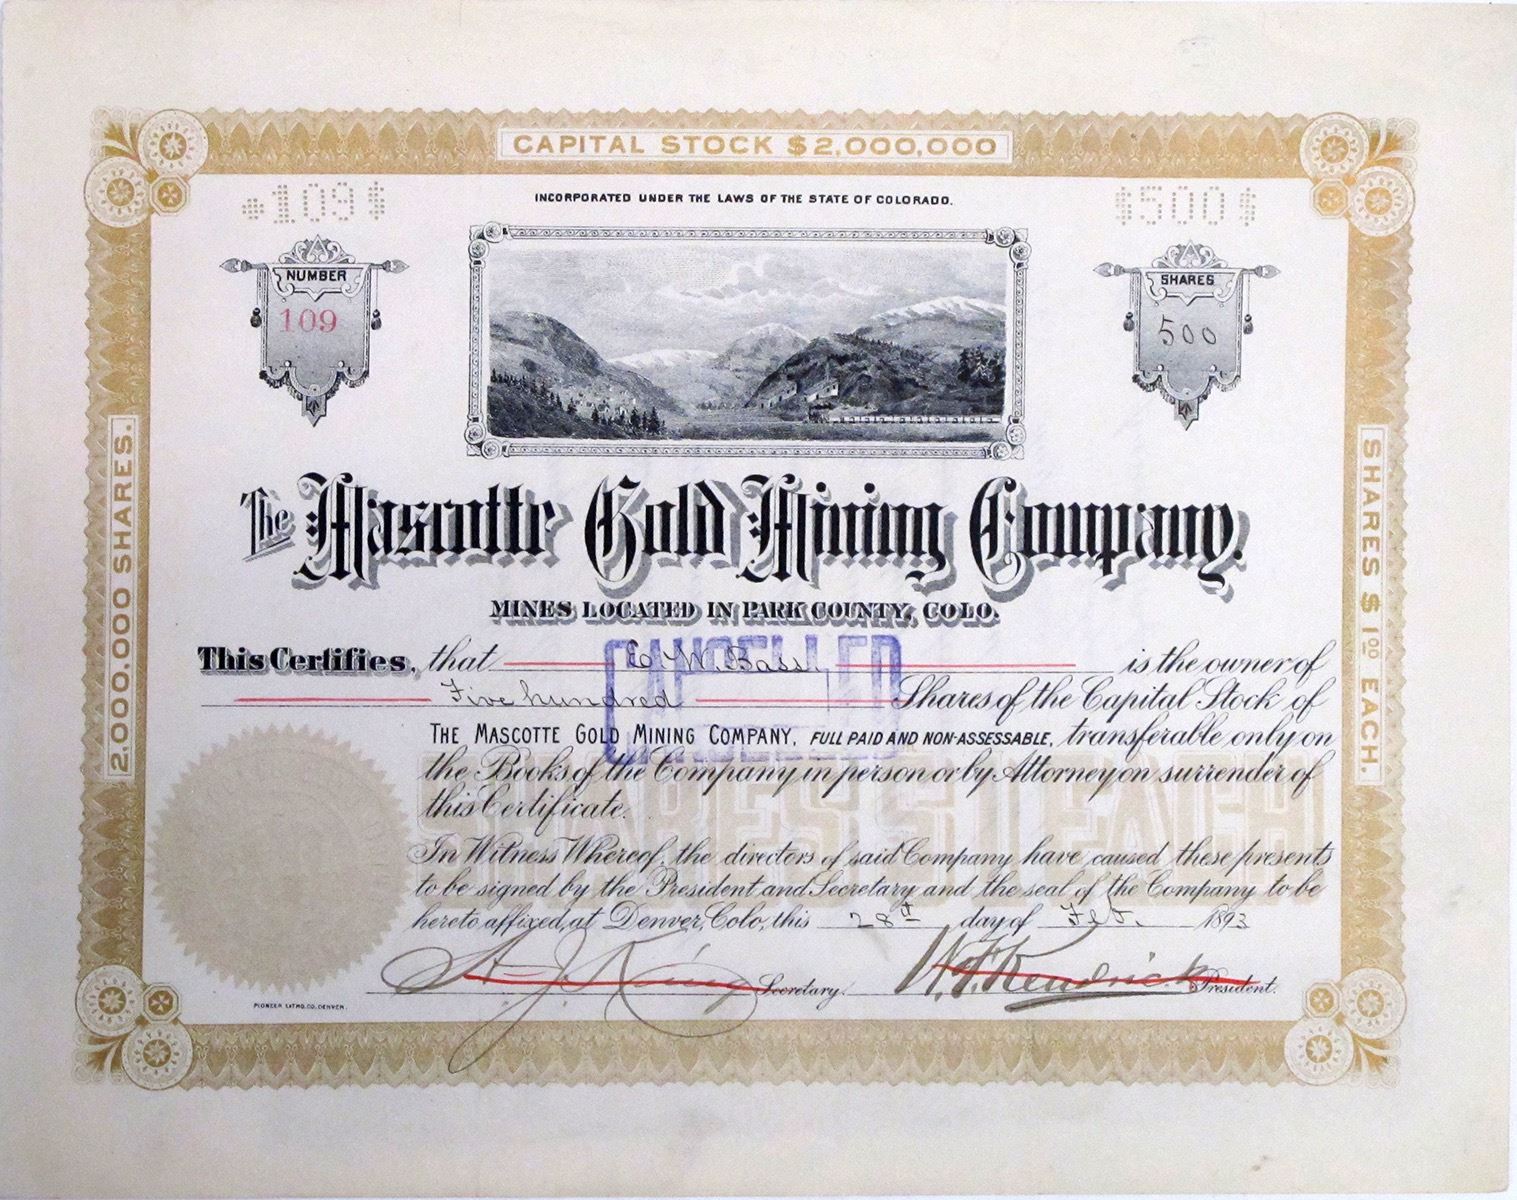 CAPITAL STOCK $2,000,000
*109$
$500$
INCORPORATED UNDER THE LAWS OF THE STATE OF COLORADO.
NUMBER
109
SHARES
500
The Mascotte Gold Mining Company.
MINES LOCATED IN PARK COUNTY, COLO.
CANCELLED
This Certifies, that E. W. Bass is the owner of
Five hundred Shares of the Capital Stock of
THE MASCOTTE GOLD MINING COMPANY, FULL PAID AND NON-ASSESSABLE, transferable only on
the Books of the Company in person or by Attorney on surrender of
this Certificate.
SHARES $1 EACH
In Witness Whereof, the directors of said Company have caused these presents
to be signed by the President and Secretary and the seal of the Company to be
hereto affixed, at Denver, Colo, this 28th day of Feb. 1893
A. J. King Secretary.
W. F. Kendrick President.
PIONEER LITHO. CO. DENVER.
2,000,000 SHARES.
SHARES $1.00 EACH.